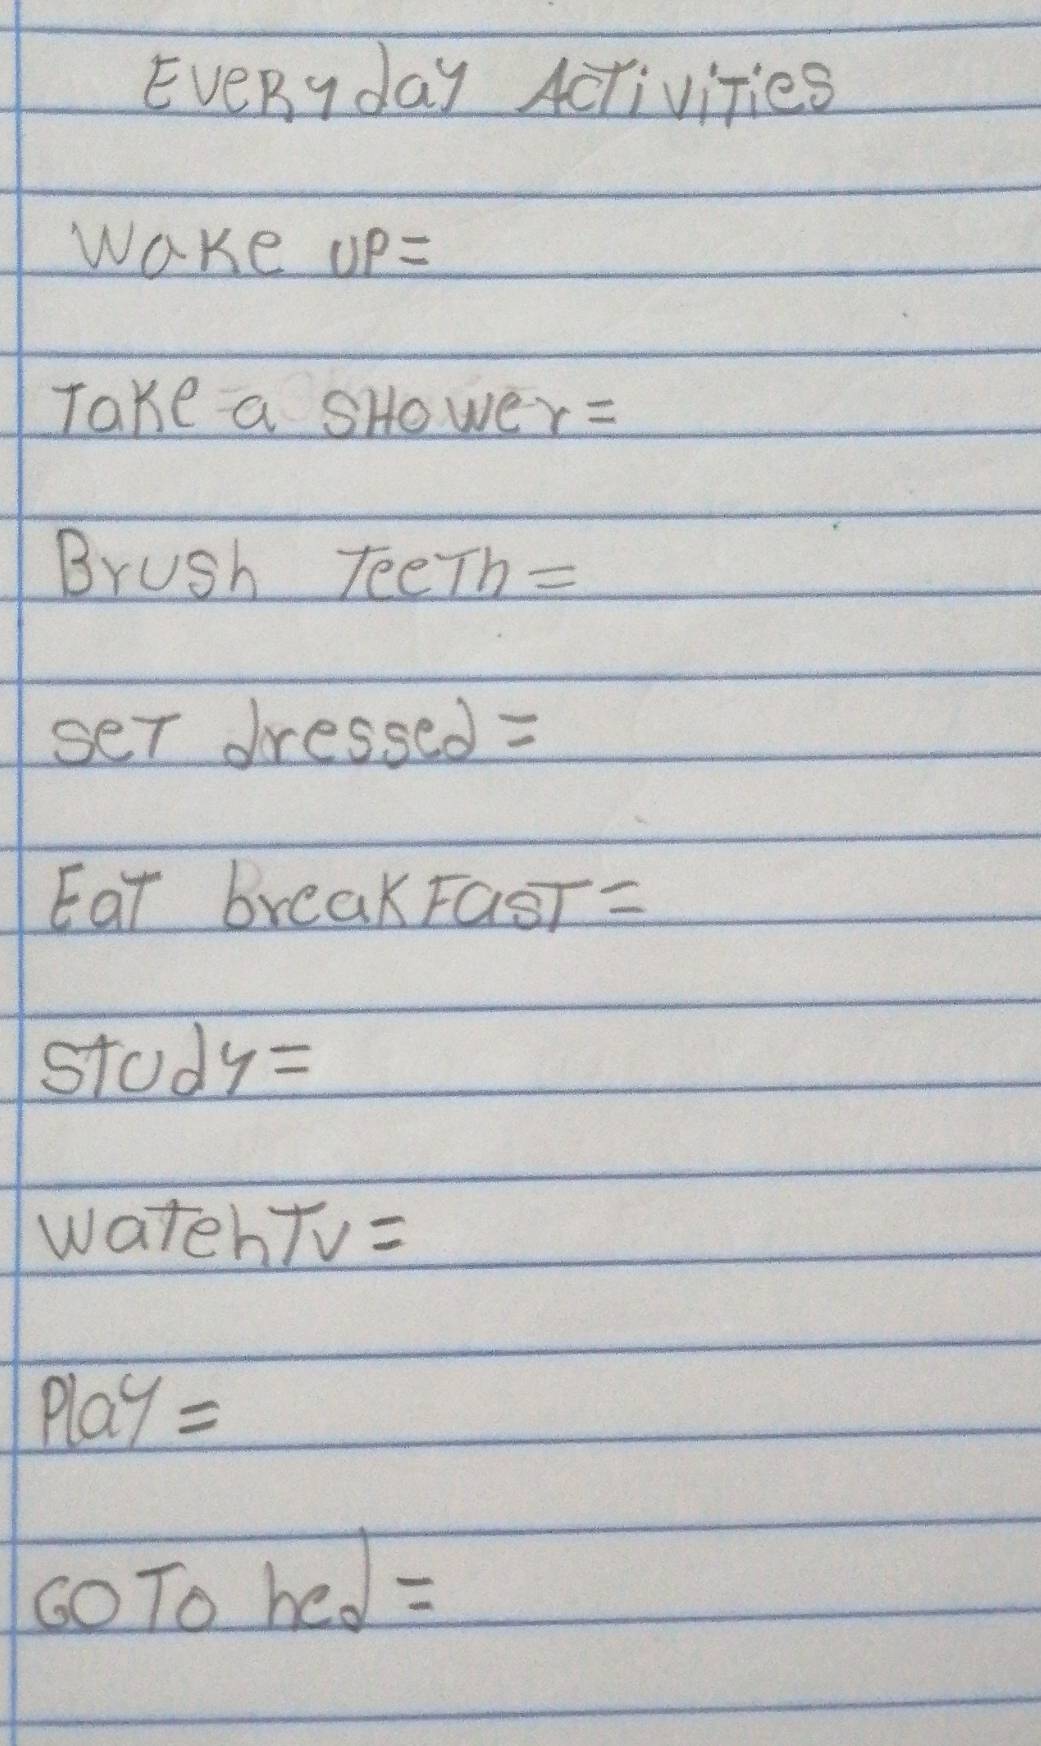 Everyday Activities
Wake up=
Take a SHower=
Brush Teeth=
seT dressed=
EaT breakFasT=
study=
WatehTv=
Play=
GO TO hed=